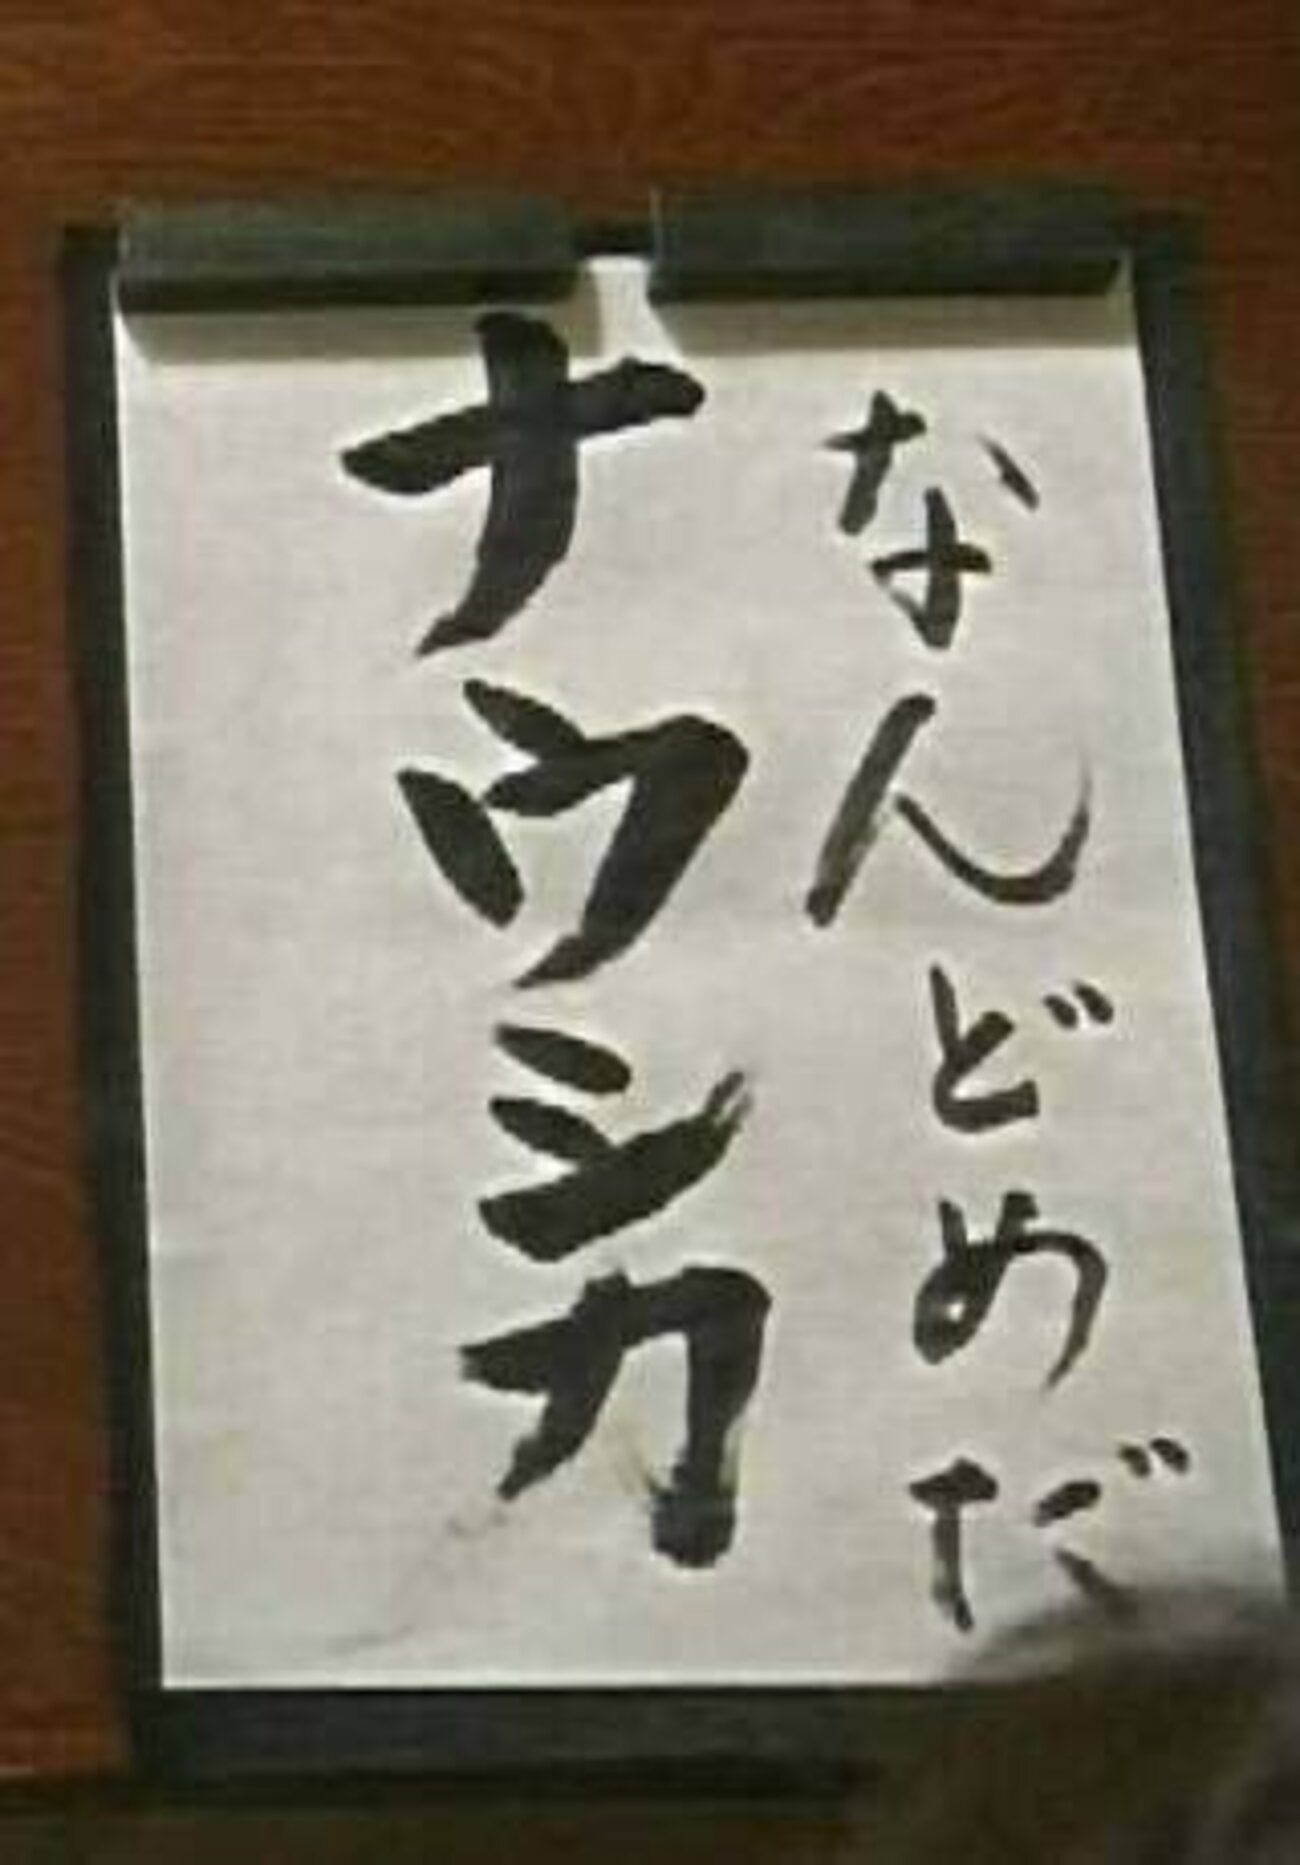 なんどめだ
ナウシカ